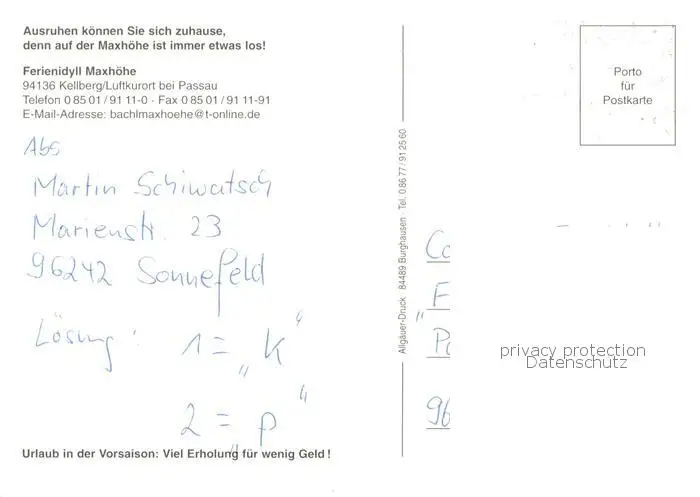 Ausruhen können Sie sich zuhause,
denn auf der Maxhöhe ist immer etwas los!
Ferienidyll Maxhöhe
94136 Kellberg/Luftkurort bei Passau
Telefon 0 85 01 / 91 11-0 · Fax 0 85 01 / 91 11-91
E-Mail-Adresse: bachlmaxhoehe@t-online.de
Abs
Martin Schiwatsch
Marienstr. 23
96242 Sonnefeld
Lösung: 1 = „K“
2 = „P“
Urlaub in der Vorsaison: Viel Erholung für wenig Geld!
Allgäuer-Druck · 84489 Burghausen · Tel. 0 86 77 / 91 25 60
Porto
für
Postkarte
Co
„F
Po
96
privacy protection
Datenschutz